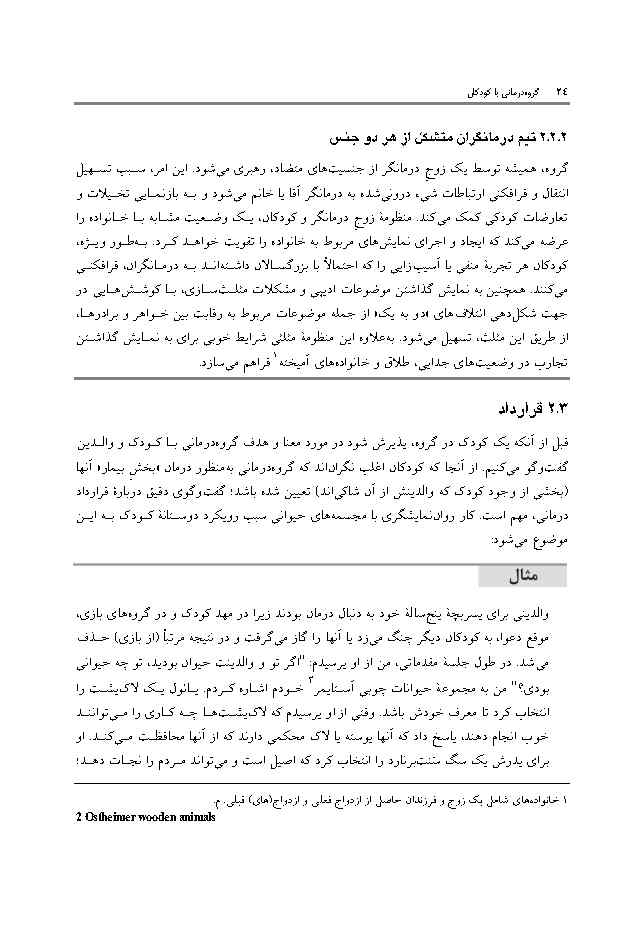 ۲٤ گروه‌درمانی با کودکان
۲.۲.۲ تیم درمانگران متشکل از هر دو جنس
گروه، همیشه توسط یک زوج درمانگر از جنسیت‌های متضاد، رهبری می‌شود. این امر، سبب تسهیل
انتقال و فرافکنی ارتباطات شیء درونی‌شده به درمانگر آقا یا خانم می‌شود و به بازنمایی تخیلات و
تعارضات کودکی کمک می‌کند. منظومهٔ زوج درمانگر و کودکان، یک وضعیت مشابه خانواده‌ها را
عرضه می‌کند که ایجاد و اجرای نمایش‌های مربوط به خانواده را تقویت خواهد کرد. به‌طور ویژه،
کودکان هر تجربهٔ منفی یا آسیب‌زایی را که احتمالاً با بزرگسالان داشته‌اند به درمانگران، فرافکنی
می‌کنند. همچنین به نمایش گذاشتن موضوعات ادیپی و مشکلات مثلث‌سازی، با کوشش‌هایی در
جهت شکل‌دهی ائتلاف‌های «دو به یک» از جمله موضوعات مربوط به رقابت بین خواهر و برادرها،
از طریق این مثلث، تسهیل می‌شود. به‌علاوه این منظومهٔ مثلثی شرایط خوبی برای به نمایش گذاشتن
تجارب در وضعیت‌های جدایی، طلاق و خانواده‌های آمیخته۱ فراهم می‌سازد.
۲.۳ قرارداد
قبل از آنکه یک کودک در گروه، پذیرش شود در مورد معنا و هدف گروه‌درمانی با کودک و والدین
گفت‌وگو می‌کنیم. از آنجا که کودکان اغلب نگران‌اند که گروه‌درمانی به‌منظور درمان «بخش بیمار» آنها
(بخشی از وجود کودک که والدینش از آن شاکی‌اند) تعیین شده باشد؛ گفت‌وگوی دقیق دربارهٔ قرارداد
درمانی، مهم است. کار روان‌نمایشگری با مجسمه‌های حیوانی سبب رویکرد دوستانهٔ کودک به این
موضوع می‌شود:
مثال
والدینی برای پسربچهٔ پنج‌سالهٔ خود به دنبال درمان بودند زیرا در مهد کودک و در گروه‌های بازی،
موقع دعوا، به کودکان دیگر چنگ می‌زد یا آنها را گاز می‌گرفت و در نتیجه مرتباً (از بازی) حذف
می‌شد. در طول جلسهٔ مقدماتی، من از او پرسیدم: "اگر تو و والدینت حیوان بودید، تو چه حیوانی
بودی؟" من به مجموعهٔ حیوانات چوبی آستایمر۲ خودم اشاره کردم. یوانا یک لاک‌پشت را
انتخاب کرد تا معرف خودش باشد. وقتی از او پرسیدم که لاک‌پشت‌ها چه کاری را می‌توانند
خوب انجام دهند، پاسخ داد که آنها یوسته یا لاک محکمی دارند که از آنها محافظت می‌کند. او
برای پدرش یک سگ سنت‌برنارد را انتخاب کرد که اصیل است و می‌تواند مردم را نجات دهد؛
۱ خانواده‌های شامل یک زوج و فرزندان حاصل از ازدواج فعلی و ازدواج(های) قبلی. م.
2 Ostheimer wooden animals